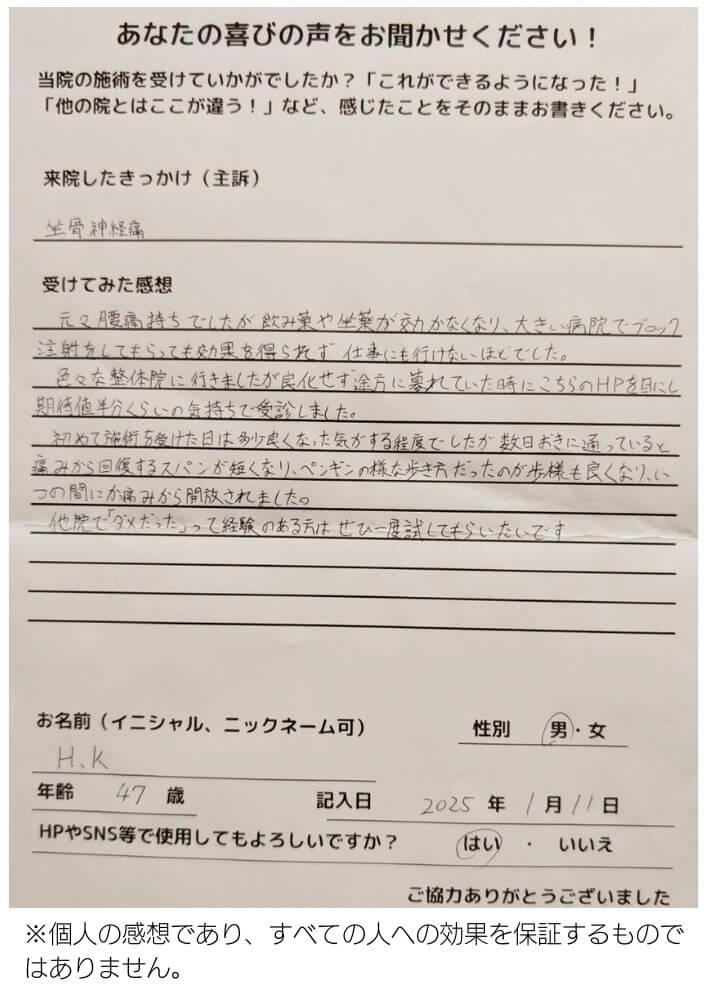 あなたの喜びの声をお聞かせください！
当院の施術を受けていかがでしたか？「これができるようになった！」
「他の院とはここが違う！」など、感じたことをそのままお書きください。
来院したきっかけ（主訴）
坐骨神経痛
受けてみた感想
元々腰痛持ちでしたが飲み薬や坐薬が効かなくなり、大きい病院でブロック
注射をしてもらっても効果を得られず仕事にも行けないほどでした。
色々な整体院に行きましたが良化せず途方に暮れていた時にこちらのHPを目にし
期待値半分くらいの気持ちで受診しました。
初めて施術を受けた日は多少良くなった気がする程度でしたが数日おきに通っていると
痛みから回復するスパンが短くなり、ペンギンの様な歩き方だったのが歩様も良くなり、い
つの間にか痛みから開放されました。
他院で「ダメだった」って経験のある方はぜひ一度試してもらいたいです
お名前（イニシャル、ニックネーム可）
性別 男・女
H.K
年齢 47 歳
記入日 2025 年 1 月 11 日
HPやSNS等で使用してもよろしいですか？ はい ・ いいえ
ご協力ありがとうございました
※個人の感想であり、すべての人への効果を保証するもので
はありません。